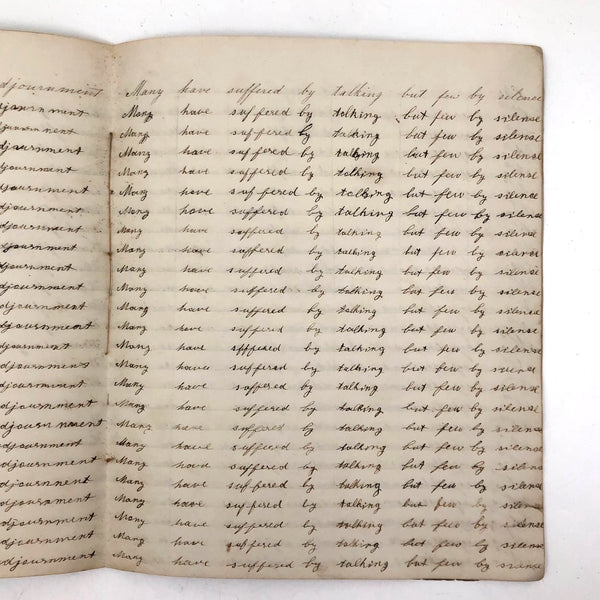 djournment
djournment
djournment
djournment
djournment
djournment
djournment
djournment
djournment
djournment
djournment
djournment
djournment
djournment
djournmens
djournment
djournment
djournment
djournment
djournment
djournment
djournment
djournment
djournment
djournment
Many have suffered by talking but few by silence
Many have suffered by talking but few by silense
Many have suffered by talking but few by silense
Many have suffered by talking but few by silense
Many have suffered by talking but few by silense
Many have suffered by talking but few by silense
Many have suffered by talking but few by silense
Many have suffered by talking but few by silense
Many have suffered by talking but few by
Many have suffered by talking but few by silense
Many have suffered by talking but few by silense
Many have suffered by talking but few by silense
Many have suffered by talking but few by silense
Many have sfffered by talking but few by silense
Many have suffered by talking but few by
Many have suffered by talking but few by silense
Many have suffered by talking but few by silense
Many have suffered by talking but few by silense
Many have suffered by talking but few by silense
Many have suffered by talking but few by silense
Many have suffered by talking but few by silense
Many have suffered by talking but few by silense
Many have suffered by talking but few by silense
Many have suffered by talking but few by silense
Many have suffered by talking but few by